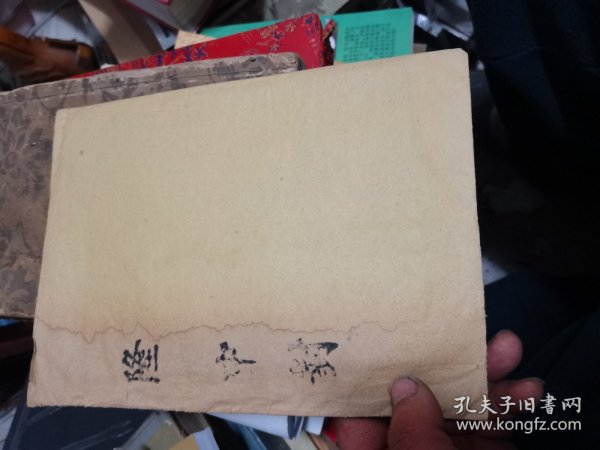 隆中對
孔夫子旧书网
www.kongfz.com